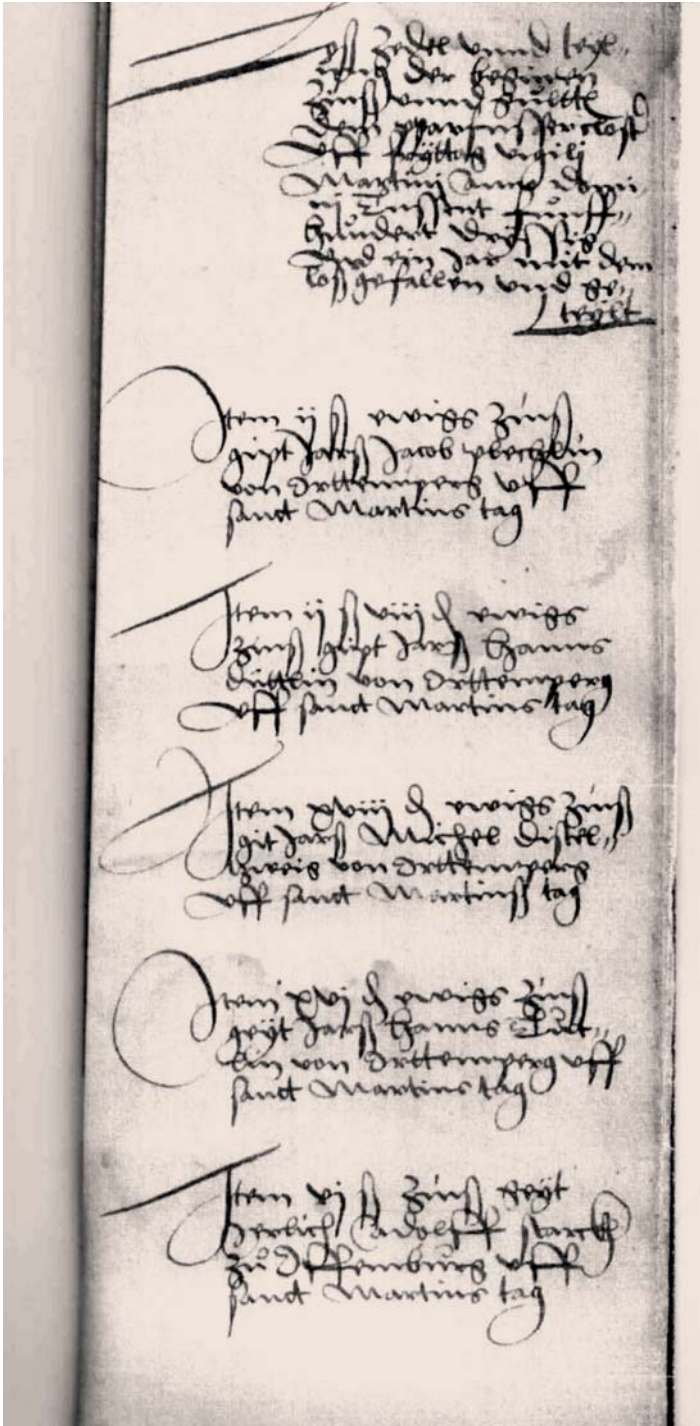 yß zedel vnnd teyl„
der beginen
zinß vnnd gulltt
dem parfusser clost
vff frÿttag vigilj
Martinj Anno domi
nj Tussent funff„
hundert drissig
vnd ein Jar mit dem
loß gefallen vnd ge„
teylt
Item ij ß ewigs zinß
gipt Jarß Jacob plechlin
von Orttemperg vff
sanct Martins tag
Item ij ß viij ₰ ewigs
zinß gipt Jarß Hanns
von Orttemperg
vff sanct Martins tag
Item xviij ₰ ewigs zinß
git Jarß Michel Distel„
zweig von Orttemperg
vff sanct Martinß tag
Item xvj ₰ ewigs zinß
geÿt Jarß Hanns
lin von Orttemperg vff
sanct Martins tag
Item vj ß zinß geÿt
Jerlich Adolff starck
zů Offemburg vff
sanct Martins tag